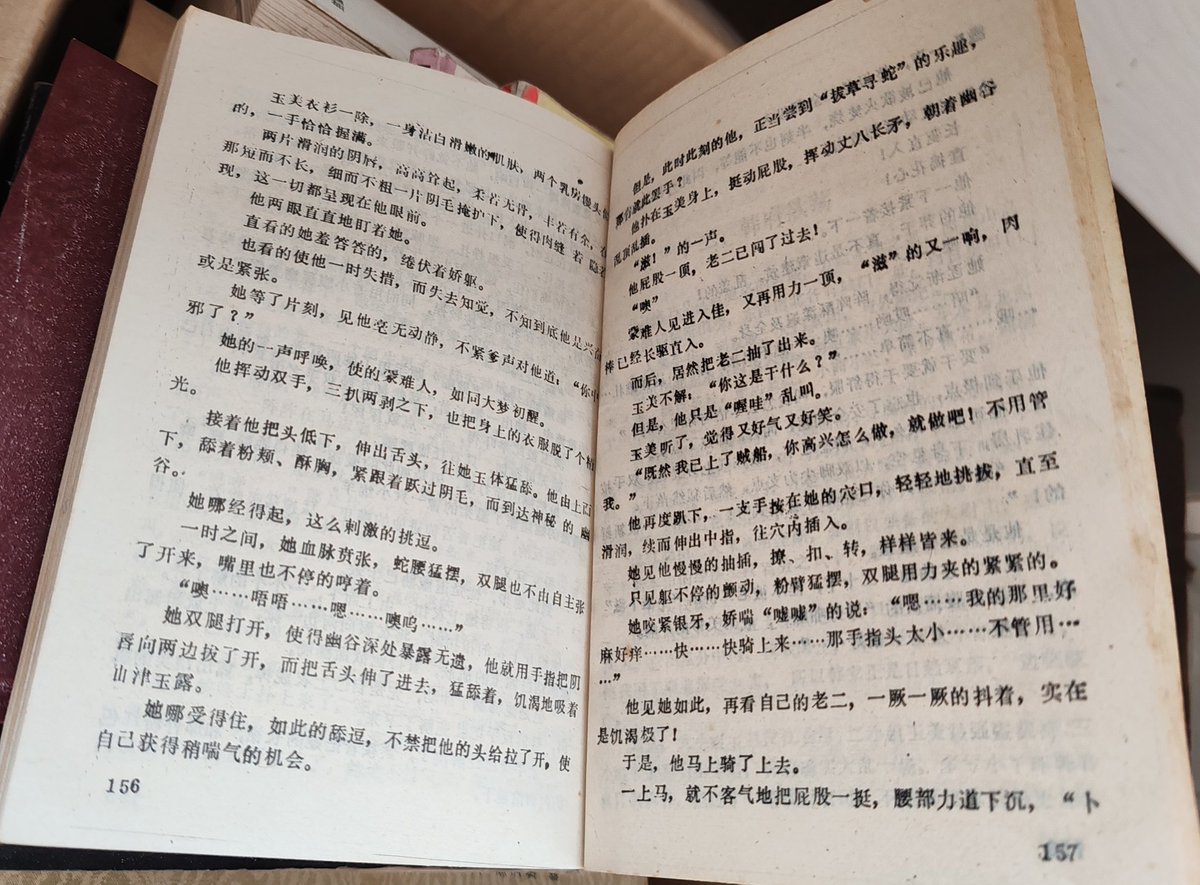 玉美衣衫一除，一身沾白滑嫩的肌肤，两个乳房馒头似
的，一手恰恰握满。
两片滑润的阴唇，高高耸起，柔若无骨，丰若有余，在
那短而不长，细而不粗一片阴毛掩护下，使得肉缝 若 隐
现，这一切都呈现在他眼前。
他两眼直直地盯着她。
直看的她羞答答的，绻伏着娇躯。
也看的使他一时失措，而失去知觉，不知到底他是兴
或是紧张。
她等了片刻，见他毫无动静，不紧爹声对他道：“你中
邪了？”
她的一声呼唤，使的蒙难人，如同大梦初醒。
他挥动双手，三扒两剥之下，也把身上的衣服脱了个
光。
接着他把头低下，伸出舌头，往她玉体猛舔。他由上而
下，舔着粉颊、酥胸，紧跟着跃过阴毛，而到达神秘 的 幽
谷。
她哪经得起，这么刺激的挑逗。
一时之间，她血脉贲张，蛇腰猛摆，双腿也不由自主张
了开来，嘴里也不停的哼着。
“噢……唔唔……嗯……噢呜……”
她双腿打开，使得幽谷深处暴露无遗，他就用手指把阴
唇向两边拔了开，而把舌头伸了进去，猛舔着，饥渴地吸着
山津玉露。
她哪受得住，如此的舔逗，不禁把他的头给拉了开，使
自己获得稍喘气的机会。
156
但是，此时此刻的他，正当尝到“拔草寻蛇”的乐趣，
那肯就此罢手？
他扑在玉美身上，挺动屁股，挥动丈八长矛，朝着幽谷
乱顶乱插。
“滋！”的一声。
他屁股一顶，老二已闯了过去！
“噢”
蒙难人见进入佳，又再用力一顶，“滋”的又一响，肉
棒已经长驱直入。
而后，居然把老二抽了出来。
玉美不解：“你这是干什么？”
但是，他只是“喔哇”乱叫。
玉美听了，觉得又好气又好笑。
“既然我已上了贼船，你高兴怎么做，就做吧！不用管
我。”
他再度趴下，一支手按在她的穴口，轻轻地挑拔，直至
滑润，续而伸出中指，往穴内插入。
她见他慢慢的抽插，撩、扣、转，样样皆来。
只见躯不停的颤动，粉臂猛摆，双腿用力夹的紧紧的。
她咬紧银牙，娇喘“嘘嘘”的说：“嗯……我的那里好
麻好痒……快……快骑上来……那手指头太小……不管用…
…”
他见她如此，再看自己的老二，一厥一厥的抖着，实在
是饥渴极了！
于是，他马上骑了上去。
一上马，就不客气地把屁股一挺，腰部力道下沉，“卜
157